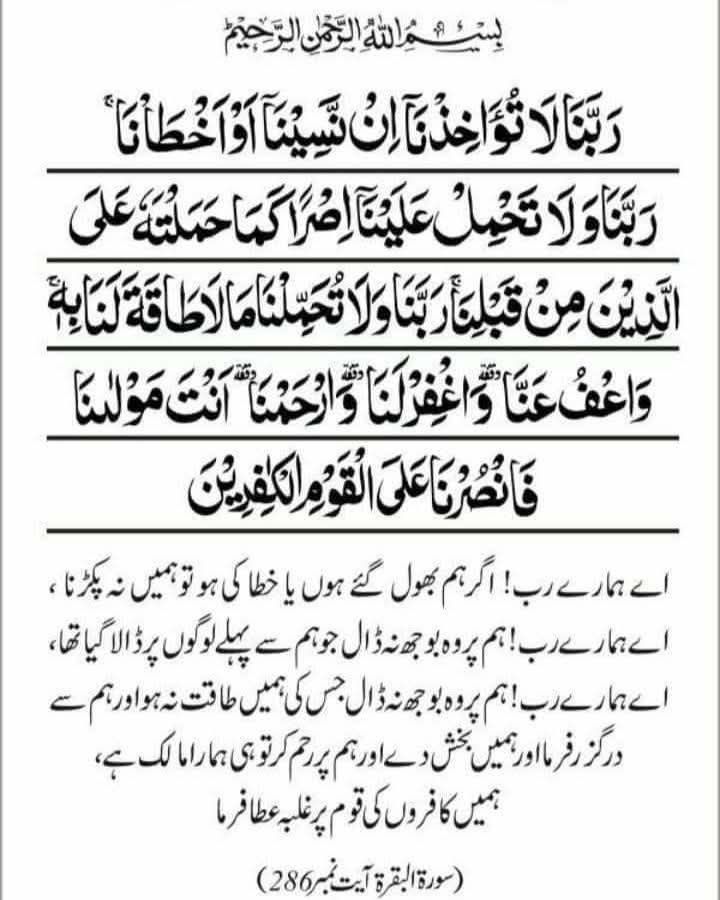 بِسْمِ اللهِ الرَّحْمٰنِ الرَّحِيْمِ
رَبَّنَا لَا تُؤَاخِذْنَآ اِنْ نَّسِيْنَآ اَوْ اَخْطَاْنَا ۚ
رَبَّنَا وَلَا تَحْمِلْ عَلَيْنَآ اِصْرًا كَمَا حَمَلْتَهٗ عَلَى
الَّذِيْنَ مِنْ قَبْلِنَا ۚ رَبَّنَا وَلَا تُحَمِّلْنَا مَا لَا طَاقَةَ لَنَا بِهٖ ۚ
وَاعْفُ عَنَّا ۥ وَاغْفِرْ لَنَا ۥ وَارْحَمْنَا ۥ اَنْتَ مَوْلٰىنَا
فَانْصُرْنَا عَلَى الْقَوْمِ الْكٰفِرِيْنَ
اے ہمارے رب! اگر ہم بھول گئے ہوں یا خطا کی ہو تو ہمیں نہ پکڑنا ،
اے ہمارے رب! ہم پر وہ بوجھ نہ ڈال جو ہم سے پہلے لوگوں پر ڈالا گیا تھا،
اے ہمارے رب! ہم پر وہ بوجھ نہ ڈال جس کی ہمیں طاقت نہ ہو اور ہم سے
درگزر فرما اور ہمیں بخش دے اور ہم پر رحم کر تو ہی ہمارا مالک ہے،
ہمیں کافروں کی قوم پر غلبہ عطا فرما
(سورۃ البقرۃ آیت نمبر 286)